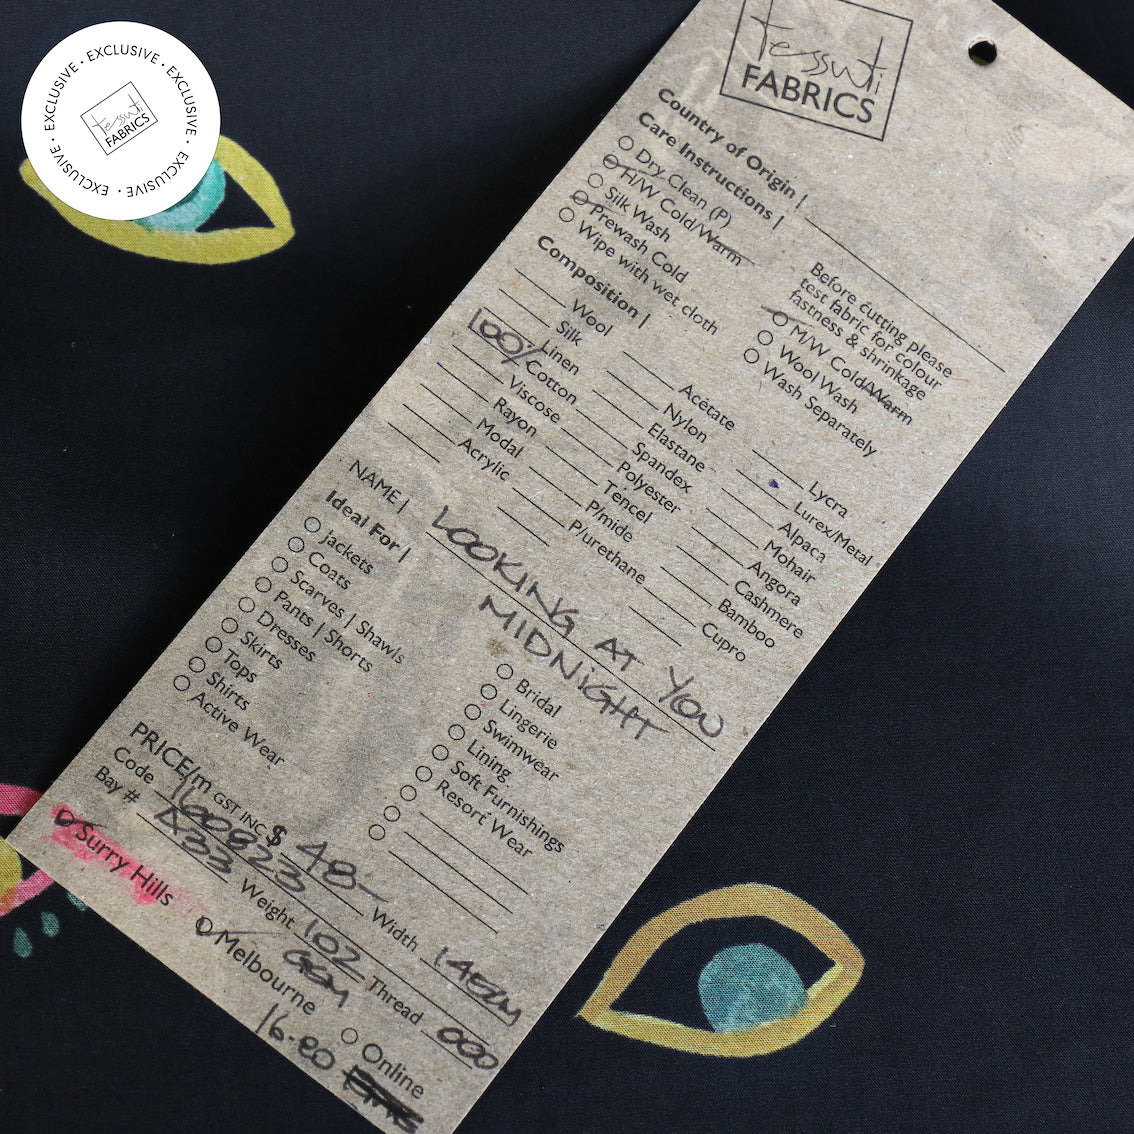 EXCLUSIVE · EXCLUSIVE · EXCLUSIVE · EXCLUSIVE · EXCLUSIVE ·
tessuti
FABRICS
tessuti
FABRICS
Country of Origin |
Care Instructions |
Dry Clean (P)
H/W Cold/Warm
Silk Wash
Prewash Cold
Wipe with wet cloth
Before cutting please
test fabric for colour
fastness & shrinkage
M/W Cold/Warm
Wool Wash
Wash Separately
Composition |
Wool
Silk
Linen
100% Cotton
Viscose
Rayon
Modal
Acrylic
Acetate
Nylon
Elastane
Spandex
Polyester
Tencel
P/mide
P/urethane
Lycra
Lurex/Metal
Alpaca
Mohair
Angora
Cashmere
Bamboo
Cupro
NAME | LOOKING AT YOU
MIDNIGHT
Ideal For |
Jackets
Coats
Scarves | Shawls
Pants | Shorts
Dresses
Skirts
Tops
Shirts
Active Wear
Bridal
Lingerie
Swimwear
Lining
Soft Furnishings
Resort Wear
PRICE/m GST INC $ 48-
Code 1600823 Width 145cm
Bay # A33 Weight 102 GSM Thread 000
Surry Hills Melbourne Online
16.80